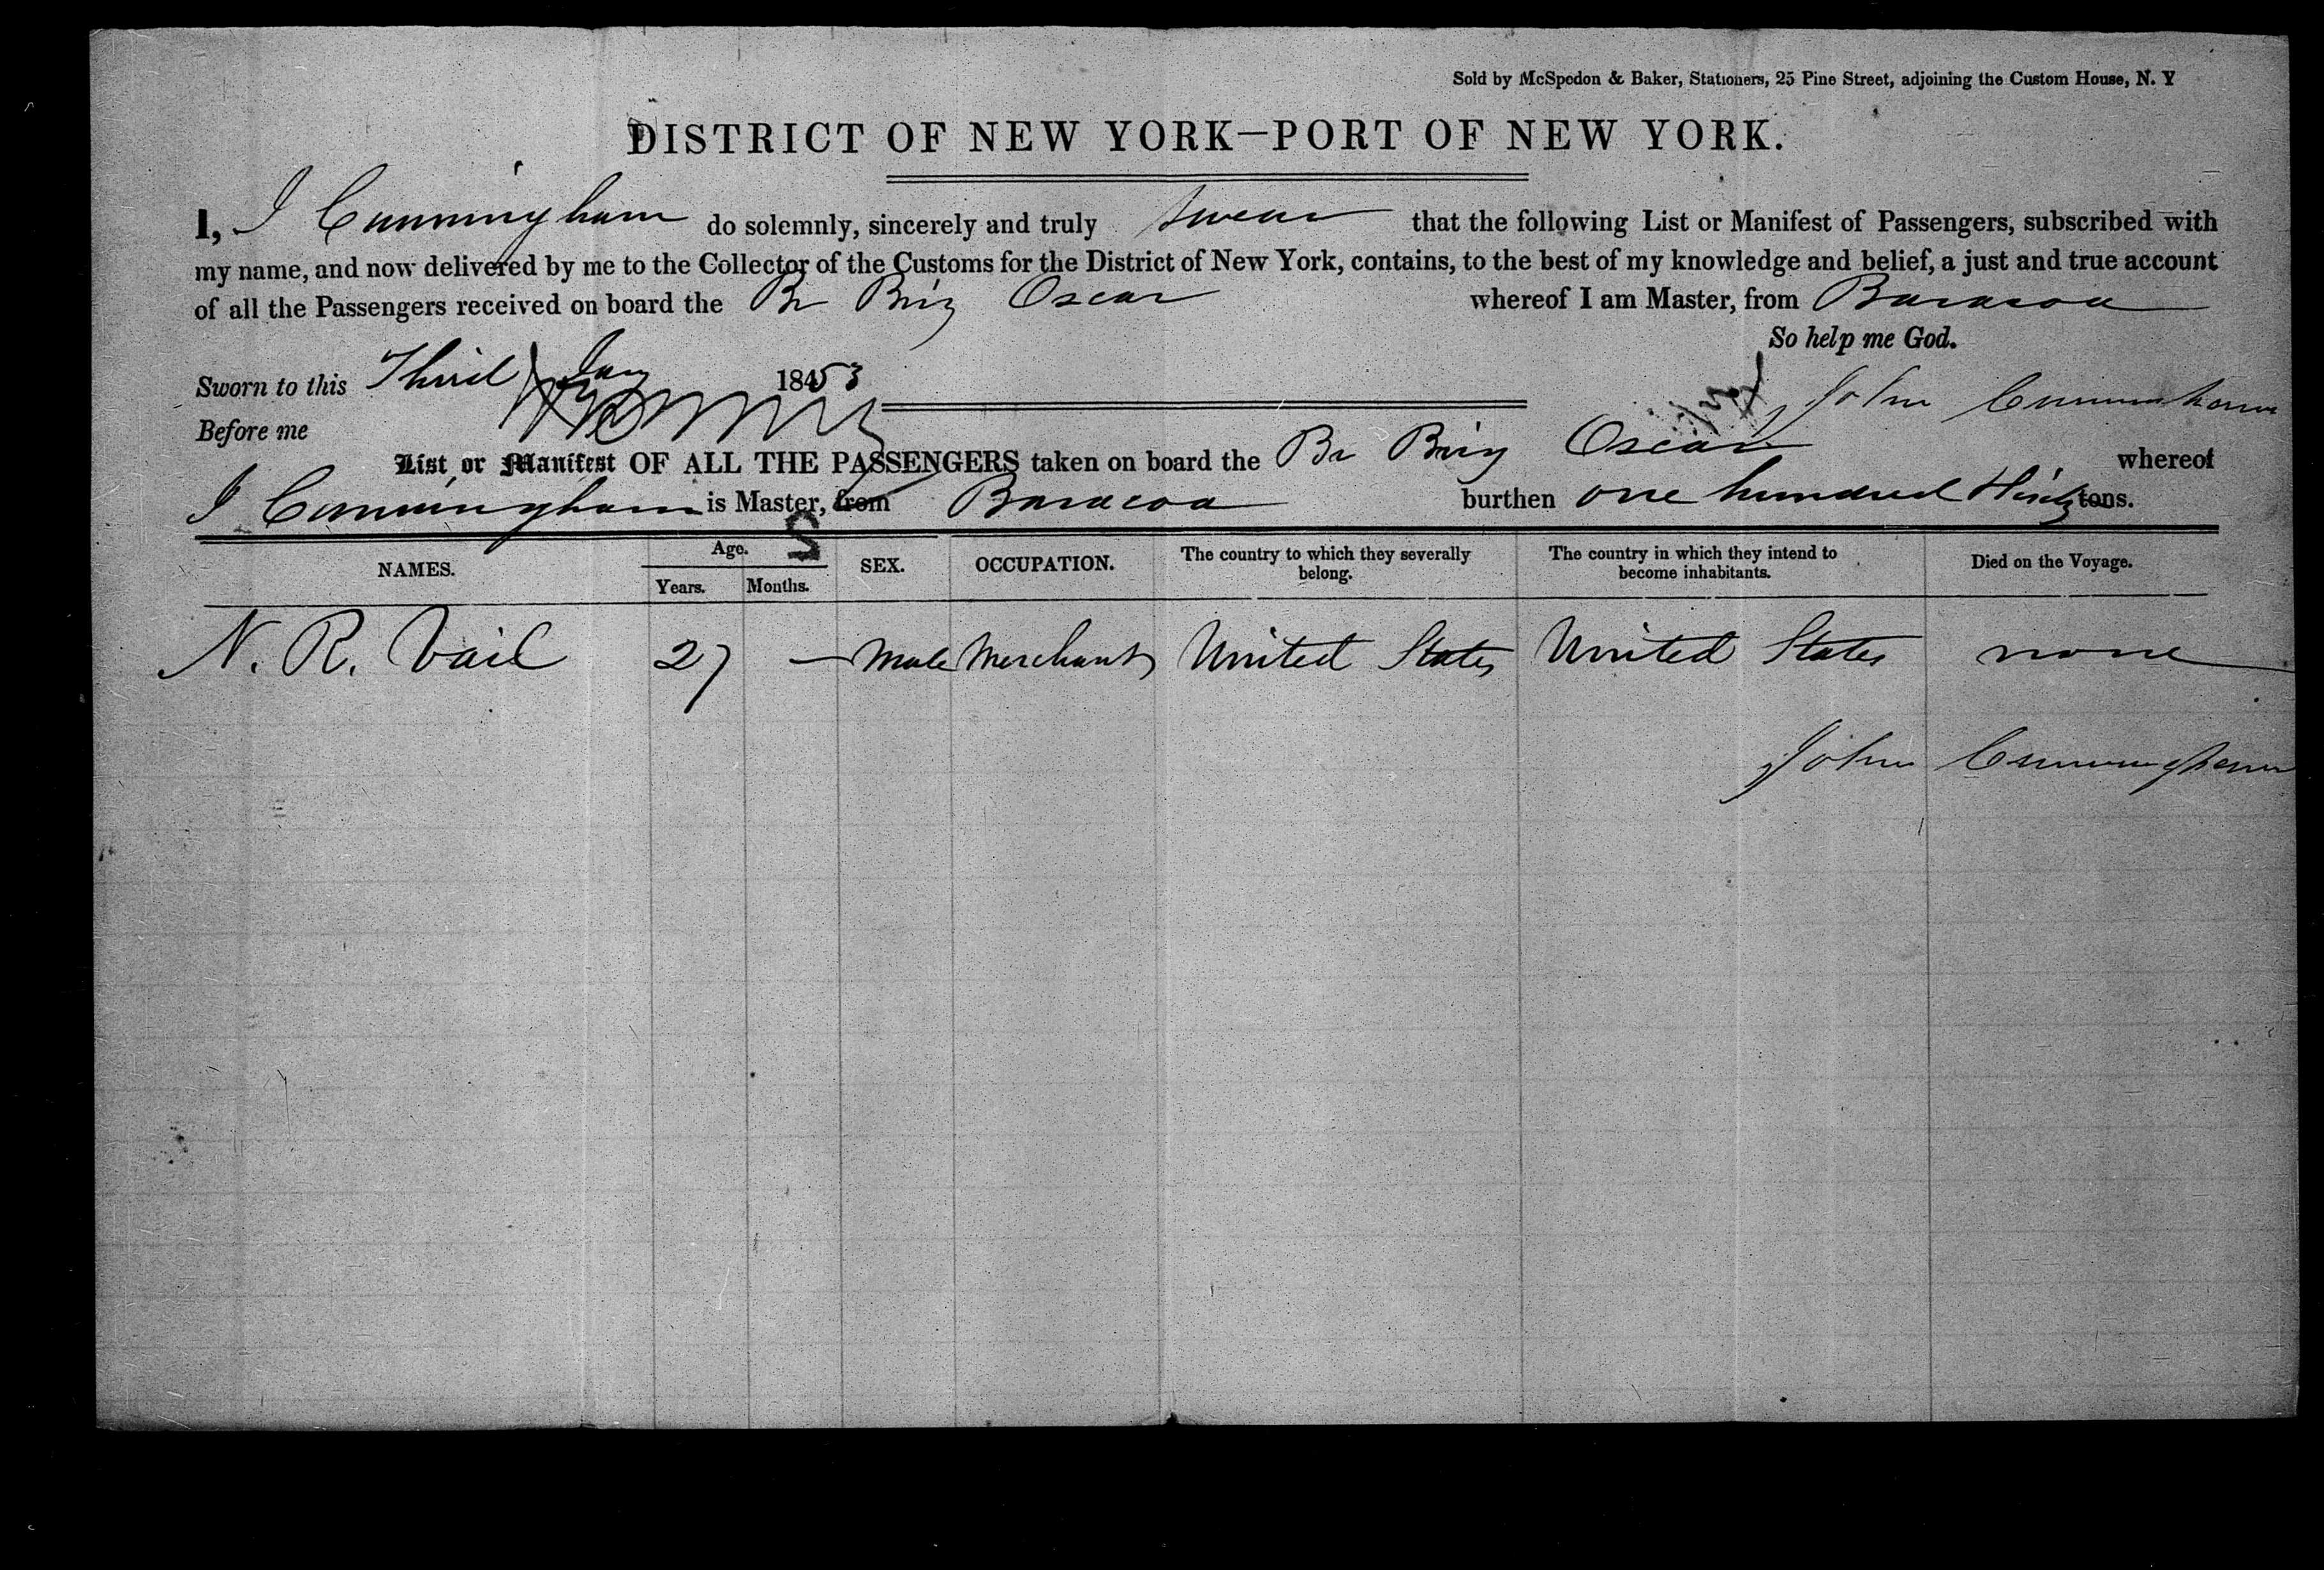 Sold by McSpedon & Baker, Stationers, 25 Pine Street, adjoining the Custom House, N. Y
DISTRICT OF NEW YORK—PORT OF NEW YORK.
I, J Cunningham do solemnly, sincerely and truly swear that the following List or Manifest of Passengers, subscribed with
my name, and now delivered by me to the Collector of the Customs for the District of New York, contains, to the best of my knowledge and belief, a just and true account
of all the Passengers received on board the Br Brig Oscar whereof I am Master, from Baracoa
So help me God.
Sworn to this Third Jany 1853
John Cunningham
Before me
List or Manifest OF ALL THE PASSENGERS taken on board the Br Brig Oscar whereof
J Cunningham is Master, from Baracoa burthen one hundred thirty tons.
NAMES. Age. Years. Months. SEX. OCCUPATION. The country to which they severally belong. The country in which they intend to become inhabitants. Died on the Voyage.
N. R. Vail 27 — Male Merchant United States United States none
John Cunningham